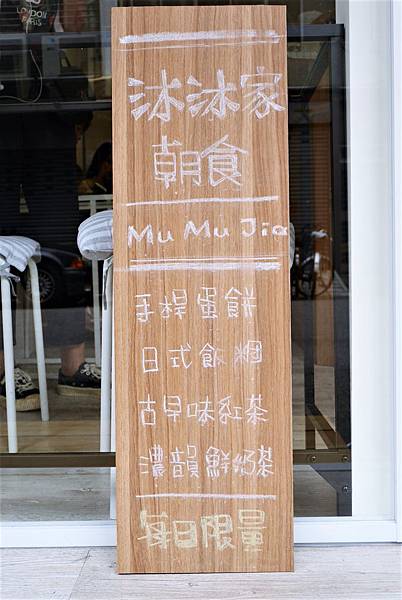 LONDON
PARIS
沐沐家
朝食
Mu Mu Jia
手桿蛋餅
日式飯糰
古早味紅茶
濃韻鮮奶茶
每日限量